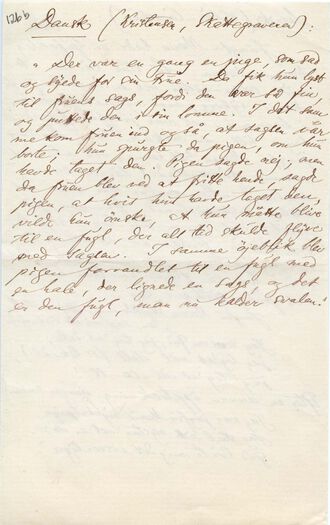 126b
Dansk (Kristensen, Skattegraveren)
"Der var en gang en pige, som sad
og syede for sin frue. Da fik hun lyst
til fruens sags, fordi den var så fin
og puttede den i sin lomme. I det samme
kom fruen ind og så, at sagsen var
borte; hun spurgte da pigen, om hun
havde taget den. Pigen sagde nej; men
da fruen blev ved at fritte hende, sagde
pigen, at hvis hun havde taget den,
vilde hun ønske, at hun måtte blive
til en fugl, der altid skulde flyve
med sagsen. I samme øjeblik blev
pigen forvandlet til en fugl med
en hale, der lignede en sags, og det
er den fugl, man nu kalder svalen."